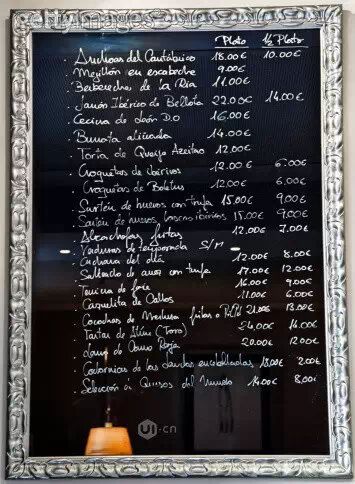 Plato ½ Plato
· Anchoas del Cantábrico 18.00€ 10.00€
· Mejillón en escabeche 9.00€
· Berberecho de la Ría 11.00€
· Jamón Ibérico de Bellota 22.00€ 14.00€
· Cecina de León D.O 16.00€
· Burrata aliñada 14.00€
· Torta de Queso Azeitao 12.00€
· Croquetas de ibéricos 12.00€ 6.00€
· Croquetas de Boletus 12.00€ 6.00€
· Sartén de huevos con trufa 15.00€ 9.00€
· Sartén de huevos, ibéricos 15.00€ 9.00€
· Alcachofas fritas 12.00€ 7.00€
· Verduras de temporada S/M
· Cuchara del día 12.00€ 8.00€
· Salteado de con trufa 17.00€ 12.00€
· Terrina de foie 16.00€ 9.00€
· Cazuelita de Callos 11.00€ 6.00€
· Cocochas de Merluza fritas o Pil Pil 21.00€ 13.00€
· Tartar de Atún (Toro) 24,00€ 14.00€
· Lomo de Roja 20.00€ 12.00€
· de las escabelladas 18.00€ 2.00€
· Selección de Quesos del Mundo 14.00€ 8.00€
UI·cn